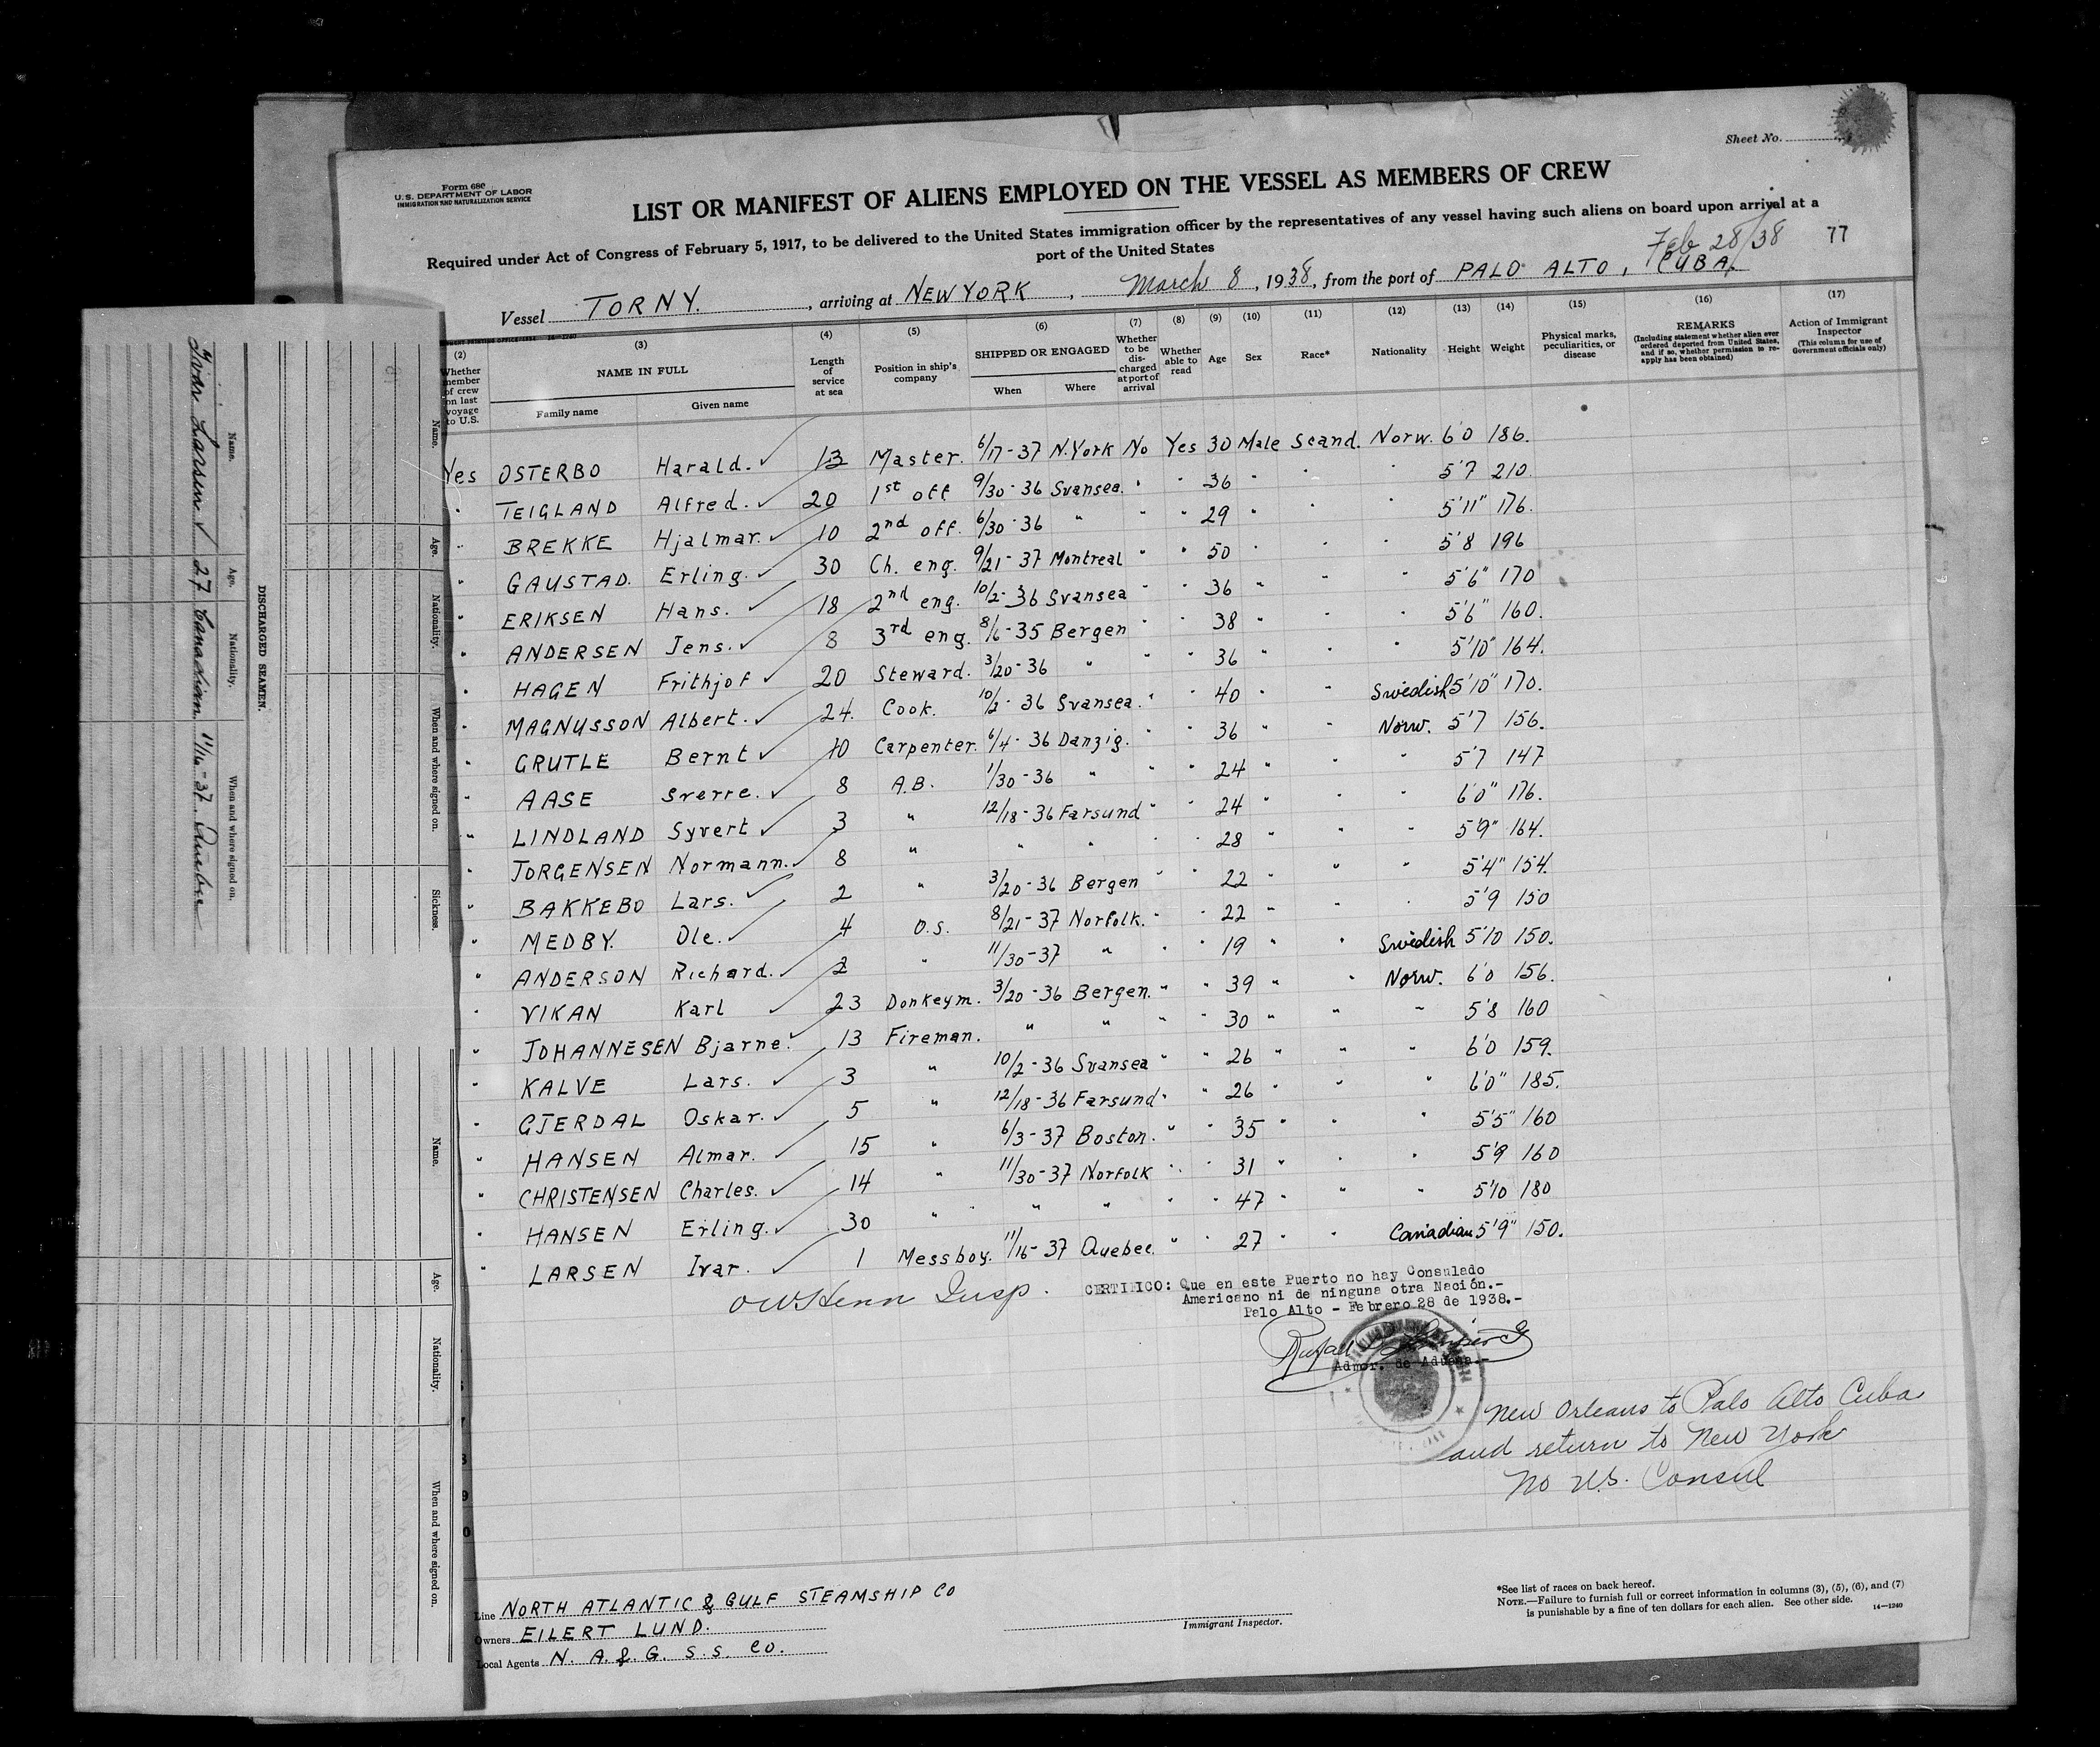 Sheet No.
Form 680
U. S. DEPARTMENT OF LABOR
IMMIGRATION AND NATURALIZATION SERVICE
LIST OR MANIFEST OF ALIENS EMPLOYED ON THE VESSEL AS MEMBERS OF CREW
Required under Act of Congress of February 5, 1917, to be delivered to the United States immigration officer by the representatives of any vessel having such aliens on board upon arrival at a
port of the United States
Feb 28/38 77
Vessel TORNY. , arriving at NEW YORK , March 8 , 1938, from the port of PALO ALTO, CUBA.
(2) (3) (4) (5) (6) (7) (8) (9) (10) (11) (12) (13) (14) (15) (16) (17)
Whether member of crew on last voyage to U.S. NAME IN FULL Family name Given name Length of service at sea Position in ship's company SHIPPED OR ENGAGED When Where Whether to be discharged at port of arrival Whether able to read Age Sex Race* Nationality Height Weight Physical marks, peculiarities, or disease REMARKS (Including statement whether alien ever ordered deported from United States, and if so, whether permission to re-apply has been obtained) Action of Immigrant Inspector (This column for use of Government officials only)
Yes OSTERBO Harald. ✓ 13 Master. 6/17-37 N.York No Yes 30 Male Scand. Norw. 6'0 186.
" TEIGLAND Alfred. ✓ 20 1st off 9/30-36 Svansea. " " 36 " " " 5'7 210.
" BREKKE Hjalmar. ✓ 10 2nd off. 6/30-36 " " " 29 " " " 5'11" 176.
" GAUSTAD. Erling. ✓ 30 Ch. eng. 9/21-37 Montreal " " 50 " " " 5'8 196
" ERIKSEN Hans. ✓ 18 2nd eng. 10/2-36 Svansea " " 36 " " " 5'6" 170
" ANDERSEN Jens. ✓ 8 3rd eng. 8/6-35 Bergen " " 38 " " " 5'6" 160.
" HAGEN Frithjof ✓ 20 Steward. 3/20-36 " " " 36 " " " 5'10" 164.
" MAGNUSSON Albert. ✓ 24. Cook. 10/2-36 Svansea. " " 40 " " Swedish 5'10" 170.
" GRUTLE Bernt ✓ 10 Carpenter. 6/4-36 Danzig. " " 36 " " Norw. 5'7 156.
" AASE Sverre. ✓ 8 A.B. 1/30-36 " " " 24 " " " 5'7 147
" LINDLAND Syvert ✓ 3 " 12/18-36 Farsund " " 24 " " " 6'0" 176.
" JORGENSEN Normann. ✓ 8 " " " " " 28 " " " 5'9" 164.
" BAKKEBO Lars. ✓ 2 " 3/20-36 Bergen " " 22 " " " 5'4" 154.
" MEDBY. Ole. ✓ 4 O.S. 8/21-37 Norfolk. " " 22 " " " 5'9 150
" ANDERSON Richard. ✓ 2 " 11/30-37 " " " 19 " " Swedish 5'10 150.
" VIKAN Karl ✓ 23 Donkeym. 3/20-36 Bergen. " " 39 " " Norw. 6'0 156.
" JOHANNESEN Bjarne. ✓ 13 Fireman. " " " " 30 " " " 5'8 160
" KALVE Lars. ✓ 3 " 10/2-36 Svansea " " 26 " " " 6'0 159.
" GJERDAL Oskar. ✓ 5 " 12/18-36 Farsund " " 26 " " " 6'0" 185.
" HANSEN Almar. ✓ 15 " 6/3-37 Boston. " " 35 " " " 5'5" 160
" CHRISTENSEN Charles. ✓ 14 " 11/30-37 Norfolk " " 31 " " " 5'9 160
" HANSEN Erling. ✓ 30 " " " " " 47 " " " 5'10 180
" LARSEN Ivar. ✓ 1 Messboy. 11/16-37 Quebec. " " 27 " " Canadian 5'9" 150.
Insp.
CERTIFICO: Que en este Puerto no hay Consulado
Americano ni de ninguna otra Nación.-
Palo Alto - Febrero 28 de 1938.-
Rafael
Admor. de Aduana.-
New Orleans to Palo Alto Cuba
and return to New York
No U.S. Consul
Line NORTH ATLANTIC & GULF STEAMSHIP CO
Owners EILERT LUND.
Local Agents N. A. & G. S. S. CO.
Immigrant Inspector.
*See list of races on back hereof.
NOTE.—Failure to furnish full or correct information in columns (3), (5), (6), and (7)
is punishable by a fine of ten dollars for each alien. See other side. 14—1240
DISCHARGED SEAMEN.
Name. Age. Nationality. When and where signed on.
Larsen ✓ 27 Canadian 11/16-37. Quebec
Name. Age. Nationality. When and where signed on. Sickness.
Name. Age. Nationality. When and where signed on.